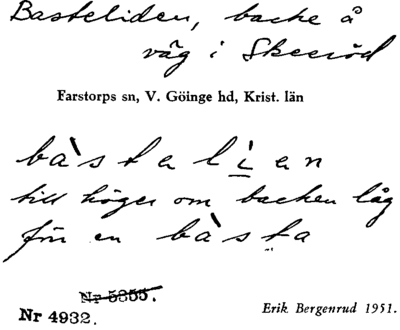 Basteliden, backe å
väg i Skeeröd
Farstorps sn, V. Göinge hd, Krist. län
bàstalien
till höger om backen låg
förr en bàsta
Nr 5355.
Nr 4932.
Erik Bergenrud 1951.